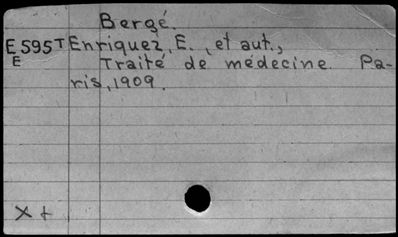 Bergé.
E595T Enriquez, E., et aut.,
E Traité de médecine Pa-
ris, 1909.
X +